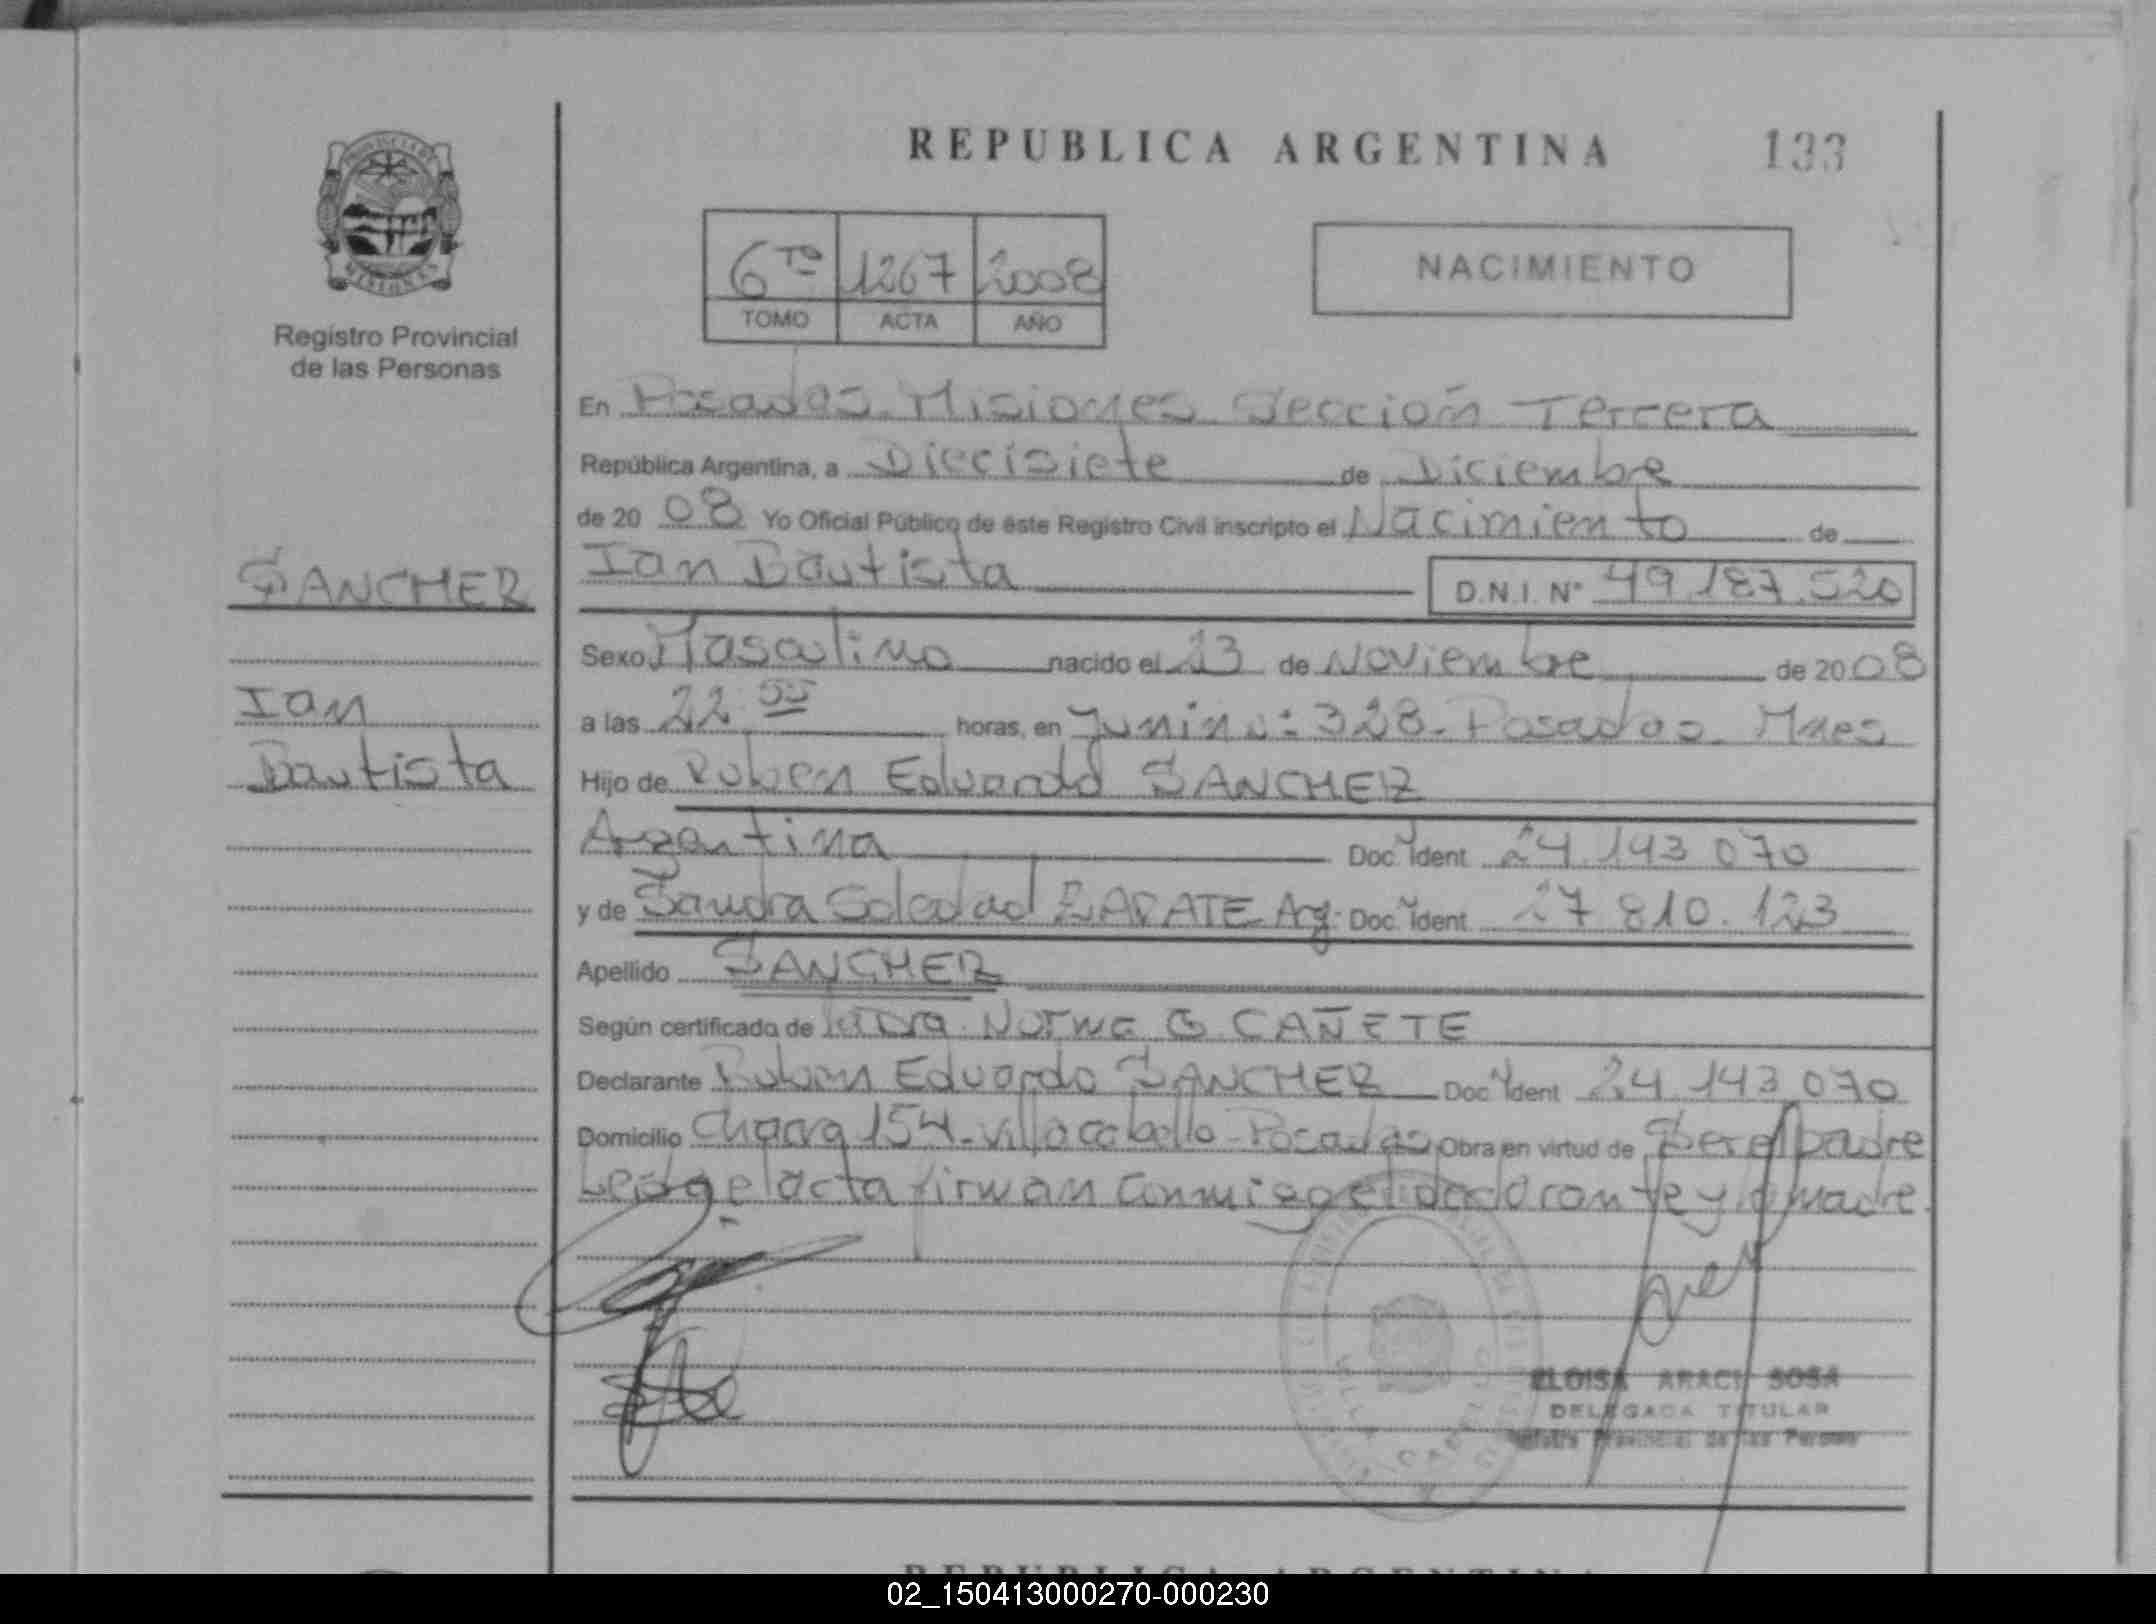 REPUBLICA ARGENTINA 133
6to 1267 2008
TOMO ACTA AÑO
NACIMIENTO
Registro Provincial
de las Personas
En Posadas Misiones Sección Tercera
República Argentina, a Diecisiete de Diciembre
de 2008 Yo Oficial Público de éste Registro Civil inscripto el Nacimiento de
SANCHEZ
Ian Bautista D.N.I. Nº 49.187.520
Sexo Masculino nacido el 13 de Noviembre de 2008
Ian
a las 22 horas, en Junin Nº 328 - Posadas Mnes
Bautista
Hijo de Ruben Eduardo SANCHEZ
Argentina Doc. Ident. 24.143.070
y de Sandra Soledad ZARATE Arg. Doc. Ident. 27.810.123
Apellido SANCHEZ
Según certificado de la Dra. Norma G CAÑETE
Declarante Ruben Eduardo SANCHEZ Doc. Ident. 24.143.070
Domicilio Chacra 154 - Villa cabello - Posadas Obra en virtud de Ser el padre
Leida el acta firman conmigo el declarante y la madre.
ELOISA ARACI SOSA
DELEGADA TITULAR
Registro Provincial de las Personas
REPUBLICA ARGENTINA
02_150413000270-000230